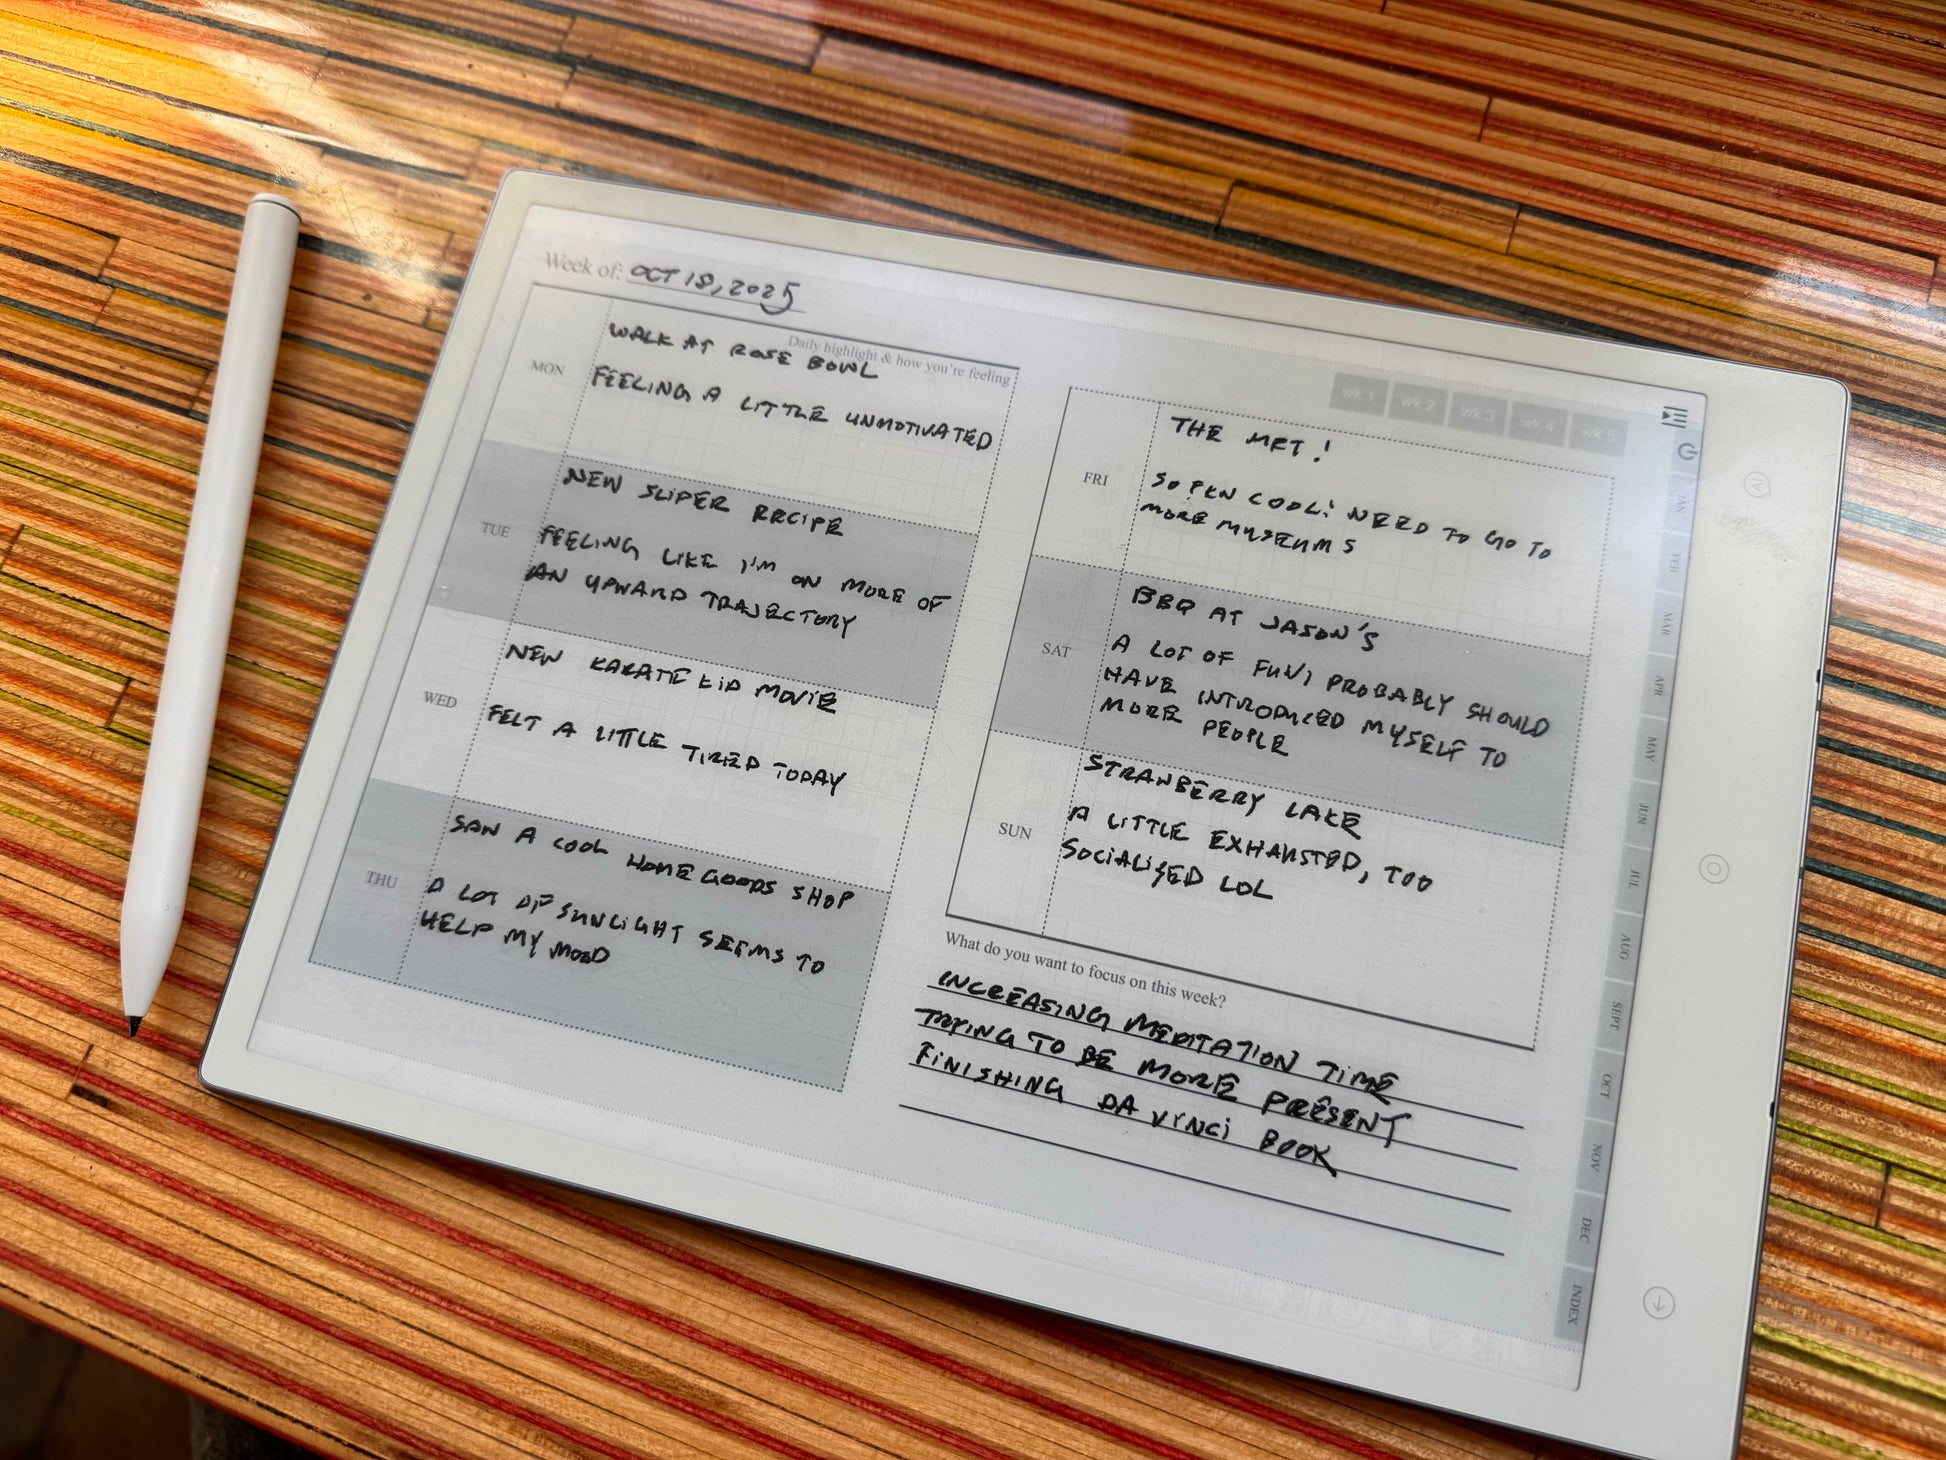 Week of: OCT 18, 2025
Daily highlight & how you're feeling
MON
WALK AT ROSE BOWL
FEELING A LITTLE UNMOTIVATED
TUE
NEW SLIDER RECIPE
FEELING LIKE I'M ON MORE OF
AN UPWARD TRAJECTORY
WED
NEW KARATE KID MOVIE
FELT A LITTLE TIRED TODAY
THU
SAW A COOL HOME GOODS SHOP
A LOT OF SUNLIGHT SEEMS TO
HELP MY MOOD
wk 1 wk 2 wk 3 wk 4 wk 5
FRI
THE MET!
SO COOL! NEED TO GO TO
MORE MUSEUMS
SAT
BBQ AT JASON'S
A LOT OF FUN, PROBABLY SHOULD
HAVE INTRODUCED MYSELF TO
MORE PEOPLE
SUN
STRAWBERRY LAKE
A LITTLE EXHAUSTED, TOO
SOCIALISED LOL
What do you want to focus on this week?
INCREASING MEDITATION TIME
TRYING TO BE MORE PRESENT
FINISHING DA VINCI BOOK
JAN
FEB
MAR
APR
MAY
JUN
JUL
AUG
SEPT
OCT
NOV
DEC
INDEX
AI